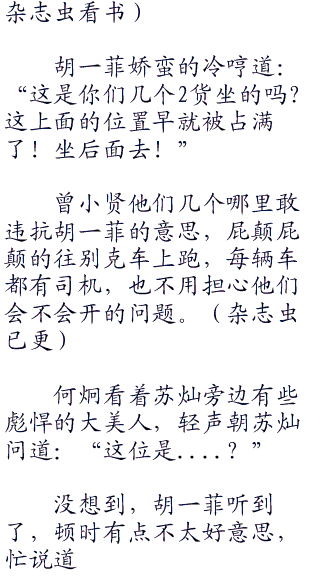 杂志虫看书)
胡一菲娇蛮的冷哼道:
“这是你们几个2货坐的吗?
这上面的位置早就被占满
了!坐后面去!”
曾小贤他们几个哪里敢
违抗胡一菲的意思,屁颠屁
颠的往别克车上跑,每辆车
都有司机,也不用担心他们
会不会开的问题。(杂志虫
已更)
何炯看着苏灿旁边有些
彪悍的大美人,轻声朝苏灿
问道:“这位是....?”
没想到,胡一菲听到
了,顿时有点不太好意思,
忙说道